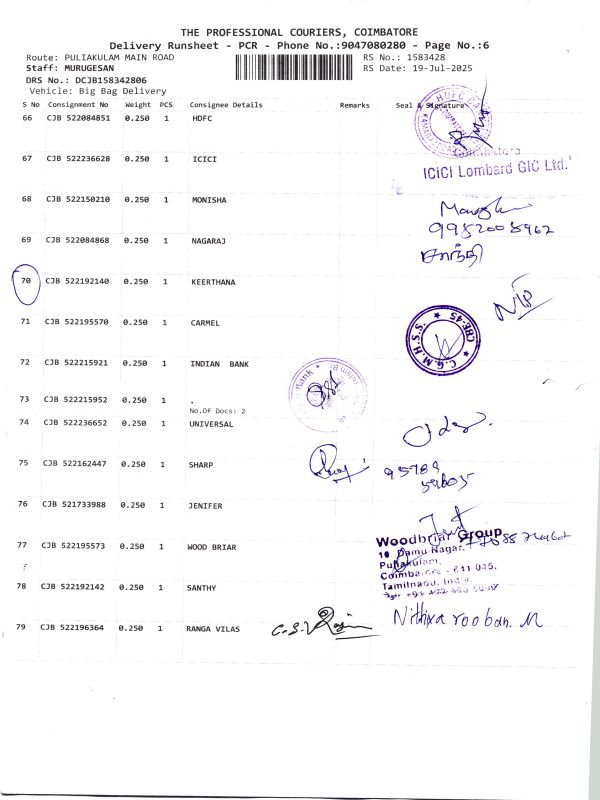 THE PROFESSIONAL COURIERS, COIMBATORE
Delivery Runsheet - PCR - Phone No.:9047080280 - Page No.:6
Route: PULIAKULAM MAIN ROAD
RS No.: 1583428
Staff: MURUGESAN
RS Date: 19-Jul-2025
DRS No.: DCJB158342806
Vehicle: Big Bag Delivery
S No Consignment No Weight PCS Consignee Details Remarks Seal & Signature
66 CJB 522084851 0.250 1 HDFC
Coimbatore
67 CJB 522236628 0.250 1 ICICI
ICICI Lombard GIC Ltd.
68 CJB 522150210 0.250 1 MONISHA
69 CJB 522084868 0.250 1 NAGARAJ
சாந்தி
70 CJB 522192140 0.250 1 KEERTHANA
71 CJB 522195570 0.250 1 CARMEL
C.G.M.H.S.S. CBE-45
72 CJB 522215921 0.250 1 INDIAN BANK
Bank
73 CJB 522215952 0.250 1 .
No.Of Docs: 2
74 CJB 522236652 0.250 1 UNIVERSAL
75 CJB 522162447 0.250 1 SHARP
76 CJB 521733988 0.250 1 JENIFER
77 CJB 522195573 0.250 1 WOOD BRIAR
Woodbriar Group
10 Damu Nagar,
Puliakulam,
Coimbatore - 641 045.
Tamilnadu, India.
78 CJB 522192142 0.250 1 SANTHY
79 CJB 522196364 0.250 1 RANGA VILAS
Nithiya rooban. M